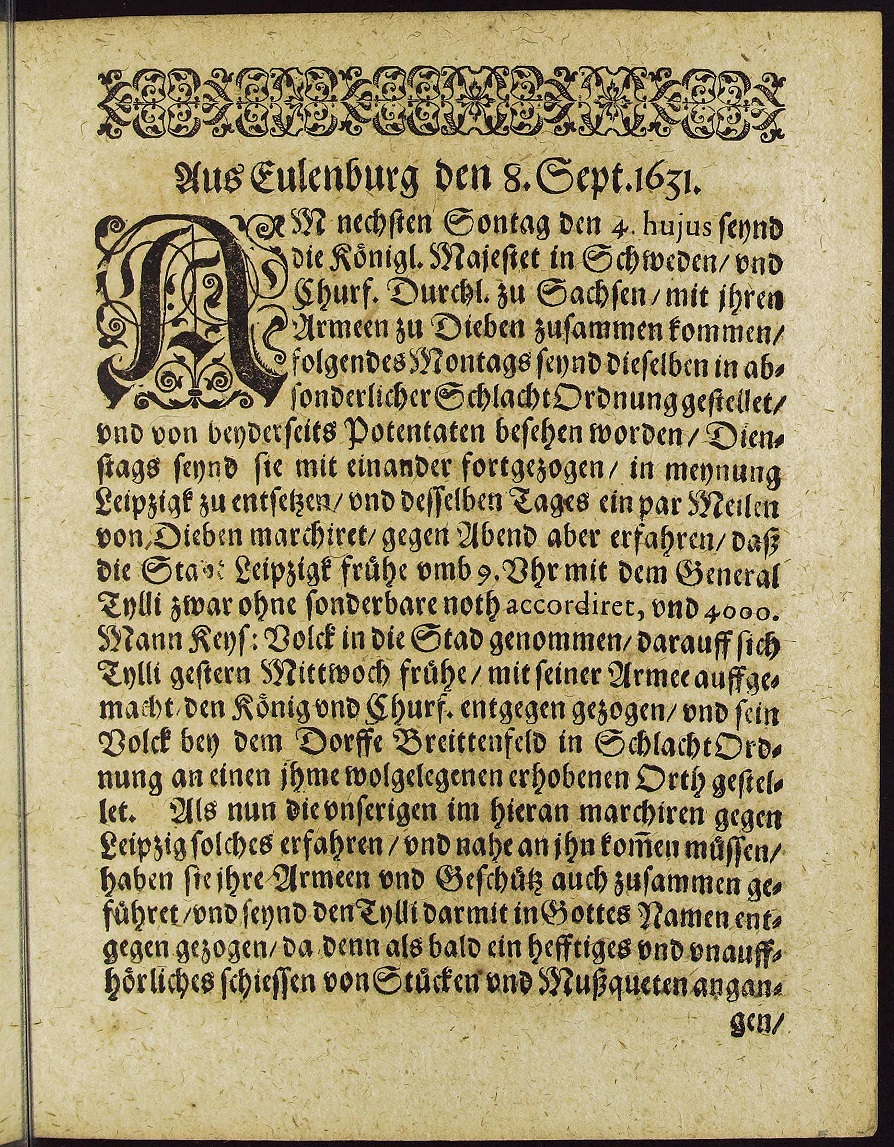 Aus Eulenburg den 8. Sept. 1631.
AM nechsten Sontag den 4. hujus seynd
die Königl. Majestet in Schweden/ vnd
Churf. Durchl. zu Sachsen/ mit jhren
Armeen zu Dieben zusammen kommen/
folgendes Montags seynd dieselben in ab-
sonderlicher Schlacht Ordnung gestellet/
vnd von beyderseits Potentaten besehen worden/ Dien-
stags seynd sie mit einander fortgezogen/ in meynung
Leipzigk zu entsetzen/ vnd desselben Tages ein par Meilen
von Dieben marchiret/ gegen Abend aber erfahren/ daß
die Stadt Leipzigk frühe vmb 9. Vhr mit dem General
Tylli zwar ohne sonderbare noth accordiret, vnd 4000.
Mann Keys: Volck in die Stad genommen/ darauff sich
Tylli gestern Mittwoch frühe/ mit seiner Armee auffge-
macht/ den König vnd Churf. entgegen gezogen/ vnd sein
Volck bey dem Dorffe Breittenfeld in Schlacht Ord-
nung an einen jhme wolgelegenen erhobenen Orth gestel-
let. Als nun die vnserigen im hieran marchiren gegen
Leipzig solches erfahren/ vnd nahe an jhn kom̄en müssen/
haben sie jhre Armeen vnd Geschütz auch zusammen ge-
führet/ vnd seynd den Tylli darmit in Gottes Namen ent-
gegen gezogen/ da denn als bald ein hefftiges vnd vnauff-
hörliches schiessen von Stücken vnd Mußqueten angan-
gen/